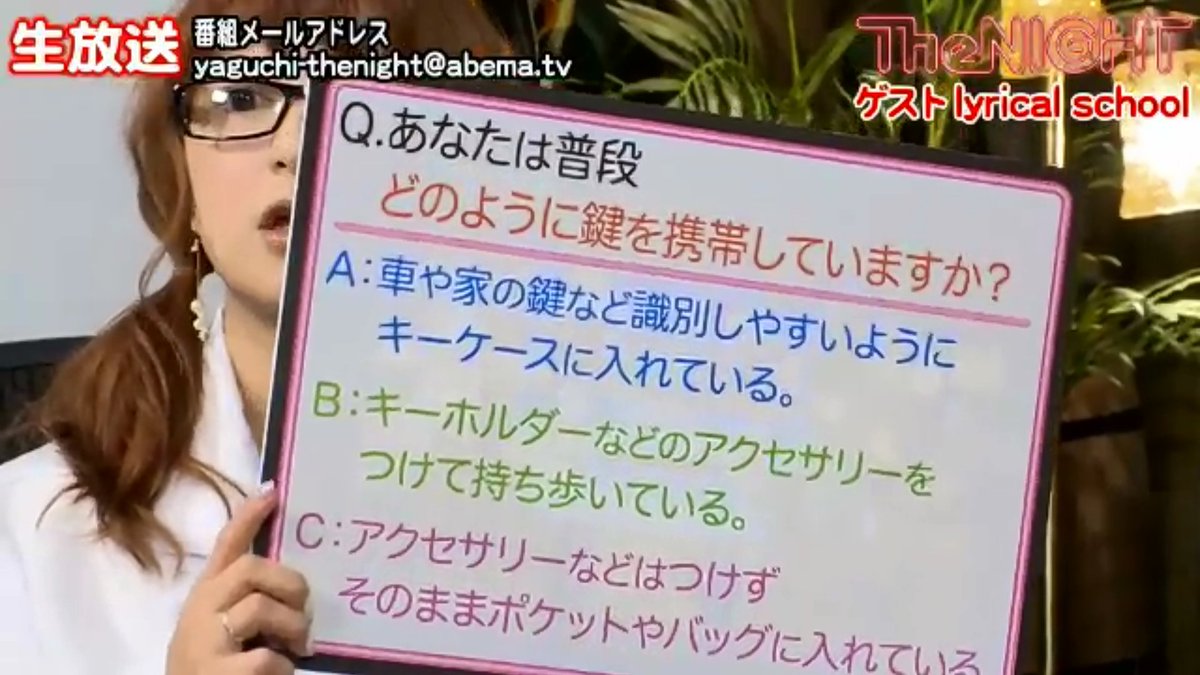 生放送
番組メールアドレス
yaguchi-thenight@abema.tv
TheNIGHT
ゲスト lyrical school
Q.あなたは普段
どのように鍵を携帯していますか?
A:車や家の鍵など識別しやすいように
キーケースに入れている。
B:キーホルダーなどのアクセサリーを
つけて持ち歩いている。
C:アクセサリーなどはつけず
そのままポケットやバッグに入れている